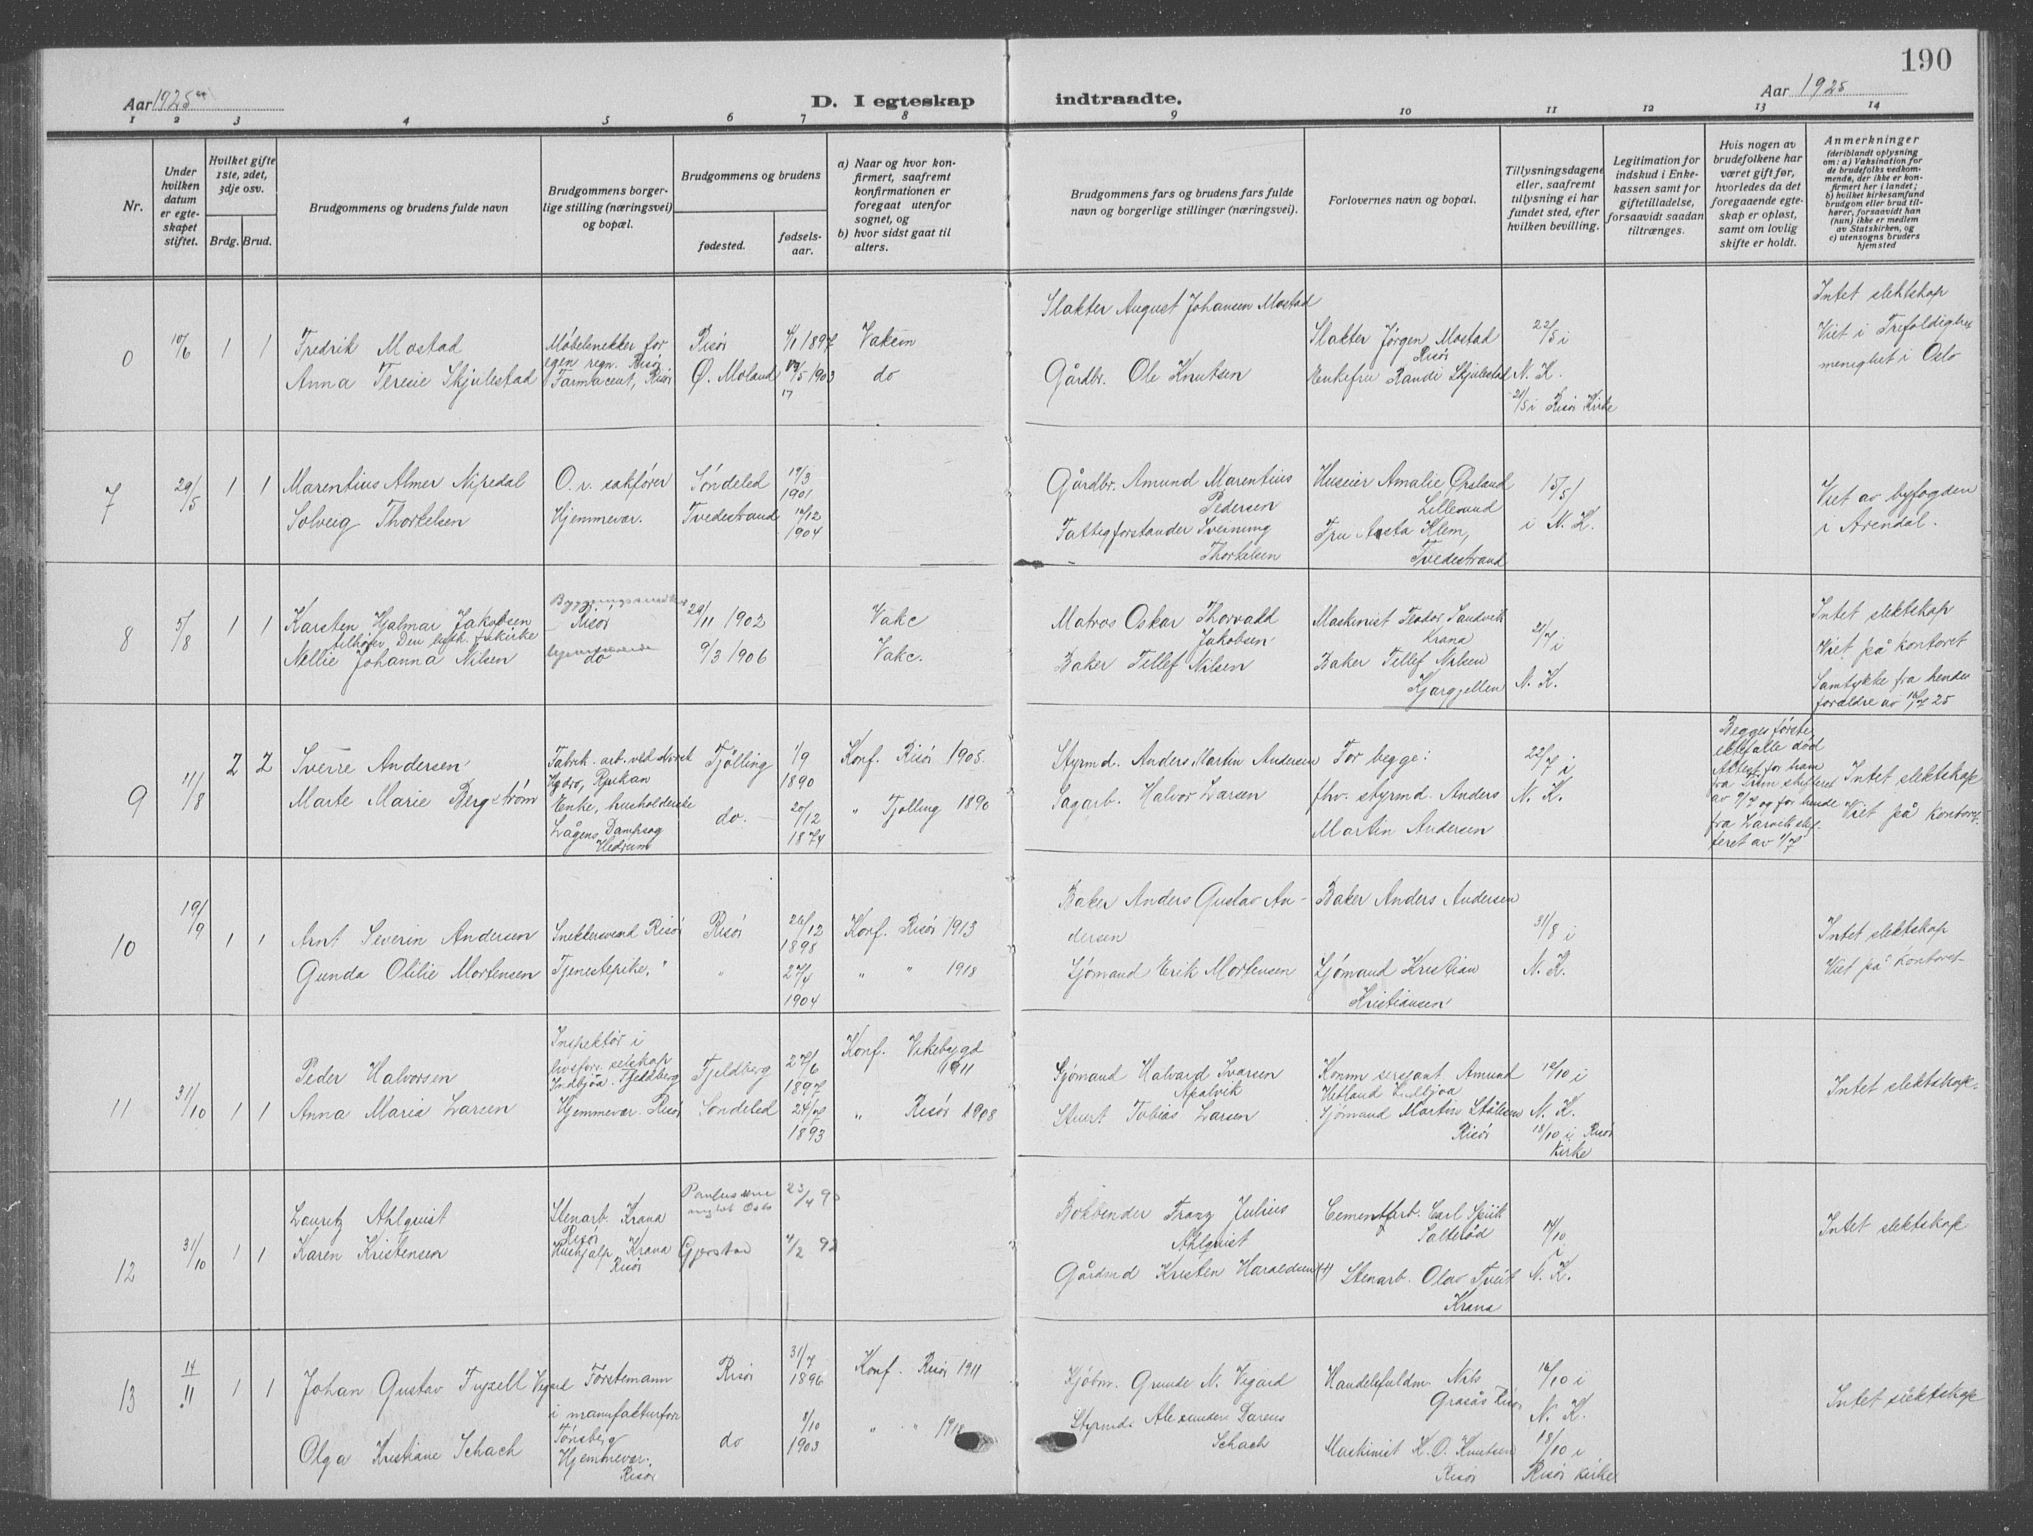 190
Aar 1925
D. I egteskap
indtraadte.
Aar 1925
1 2 3 4 5 6 7 8 9 10 11 12 13 14
Nr.
Under hvilken datum er egteskapet stiftet.
Hvilket gifte 1ste, 2det, 3dje osv.
Brdg. Brud.
Brudgommens og brudens fulde navn
Brudgommens borgerlige stilling (næringsvei) og bopæl.
Brudgommens og brudens
fødested.
fødselsaar.
a) Naar og hvor konfirmert, saafremt konfirmationen er foregaat utenfor sognet, og
b) hvor sidst gaat til alters.
Brudgommens fars og brudens fars fulde navn og borgerlige stillinger (næringsvei).
Forlovernes navn og bopæl.
Tillysningsdagene eller, saafremt tillysning ei har fundet sted, efter hvilken bevilling.
Legitimation for indskud i Enkekassen samt for giftetilladelse, forsaavidt saadan tiltrænges.
Hvis nogen av brudefolkene har været gift før, hvorledes da det foregaaende egteskap er opløst, samt om lovlig skifte er holdt.
Anmerkninger
(deriblandt oplysning om: a) Vaksination for de brudefolks vedkommende, der ikke er konfirmert her i landet; b) hvilket kirkesamfund brudgom eller brud tilhører, forsaavidt han (hun) ikke er medlem av Statskirken, og c) utensogns bruders hjemsted
0 10/6 1 1
Fredrik Mostad
Møbelsnekker for egen regn. Risør
Risør
4/1 1897
Vaksin
Slakter August Johansen Mostad
Slakter Jørgen Mostad
Risør
22/5 i
N. K.
Intet slektskap
Viet i Trefoldighets
menighet i Oslo
Anna Teresie Skjulestad
Farmaceut, Risør
Ø. Moland
5 1903
17
do
Gårdbr. Ole Knutsen
Enkefru Randi Skjulestad
21/5 i Risør Kirke
7 29/5 1 1
Marentius Almer Nipedal
O.r. sakfører
Søndeled
19/3
1901
Gårdbr. Amund Marentius
Pedersen
Huseier Amalie Øresland
Lillesand
15/5
i N. K.
Viet av byfogden
i Arendal.
Solveig Thorkelsen
Hjemmevær.
Tvedestrand
12
1904
Fattigforstander Sveinung
Thorkelsen
Fru Aasta Klem,
Tvedestrand
8 5/8 1 1
Karsten Hjalmar Jakobsen
tilhører Den luth. frikirke
Risør
29/11 1902
Vakc
Matros Oskar Thorvald
Jakobsen
Maskinist Teodor Sandvik
Krana
21/7 i
N. K.
Intet slektskap
Viet på kontoret
Samtykke fra hendes
foreldre av 16/7 25
Nellie Johanna Nilsen
do
9/3 1906
Vakc.
Baker Tellef Nilsen
Baker Tellef Nilsen
9 11/8 2 2
Sverre Andersen
Fabrik. arb. ved Norsk
Hydro, Rjukan
Tjølling
1/9
1890
Konf. Risør 1905
Styrmd. Anders Martin Andersen
For begge:
fhv. styrmd. Anders
Martin Andersen
22/7 i
N. K.
Begges første
ektefalle død
Attest for ham
fra Tinn skifteret
av 9/7 og for hende
fra Larvik skif-
teret av 1/7
Intet slektskap
Viet på kontoret
Marte Marie Bergstrøm
Enke, husholderske
Lågens Dampsag
Hedrum
do.
20/12
1874
" Tjølling 1890
Sagarb. Halvor Larsen
10 19/9 1 1
Arnt Severin Andersen
Snekkersvend Risør
Risør
26/12
1898
Konf. Risør 1913
Baker Anders Gustav An-
dersen
Baker Anders Andersen
31/8 i
N. K.
Intet slektskap
Viet på kontoret
Gunda Otilie Mortensen
Tjenestepike, "
"
27/4
1904
" " 1918
Sjømand Erik Mortensen
Sjømand Kristian
Kristiansen
11 31/10 1 1
Peder Halvorsen
Inspektør i
livsfors. selskap
Indbjoa. Fjeldberg
Fjeldberg
27/6
1897
Konf. Vikebygd
1911
Sjømand Halvard Ivarsen
Apalvik
Komm sersjant Amund
Hetland Indbjoa
12/10 i
N. K.
Intet slektskap.
Anna Maria Larsen
Hjemmevær. Risør
Søndeled
24/7
1893
" Risør 1908
Stuert Tobias Larsen
Sjømand Martin Ståløsen
Risør
18/10 i Risør
Kirke
12 31/10 1 1
Lauritz Ahlquist
Stenarb. Krana
Risør
Paulus me-
nighet Oslo
23/4 9
Bokbender Franz Julius
Ahlquist
Cementarb. Carl Spük
Salterød
i
N. K.
Intet slektskap
Karen Kristensen
Hushjælp Krana
Risør
Gjerstad
4/2 92
Gårdmd Kristen Haraldsen (+)
Stenarb. Olav Tveit
Krana
13 14/11 1 1
Johan Gustav Tyzell Vigard
Førstemann
i manufakturforr
Tønsberg
Risør
31/7
1896
Konf. Risør 1911
Kjøbm. Grunde N. Vigard
Handelsfuldm. Nils
Grasås Risør
16/10 i
N. K.
Intet slektskap
Olga Kristiane Schach
Hjemmevær.
Risør
do
2/10
1903
" " 1918
Styrmd. Alexander Dareus
Schach
Maskinist K. O. Knutsen
Risør
18/10 i
Risør kirke